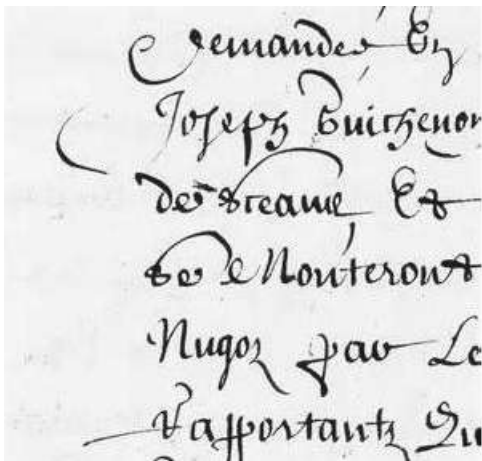 demandes En
Joseph Guichenon
de Et
de Monteront
Nugoz par Le
Rapportantz Du